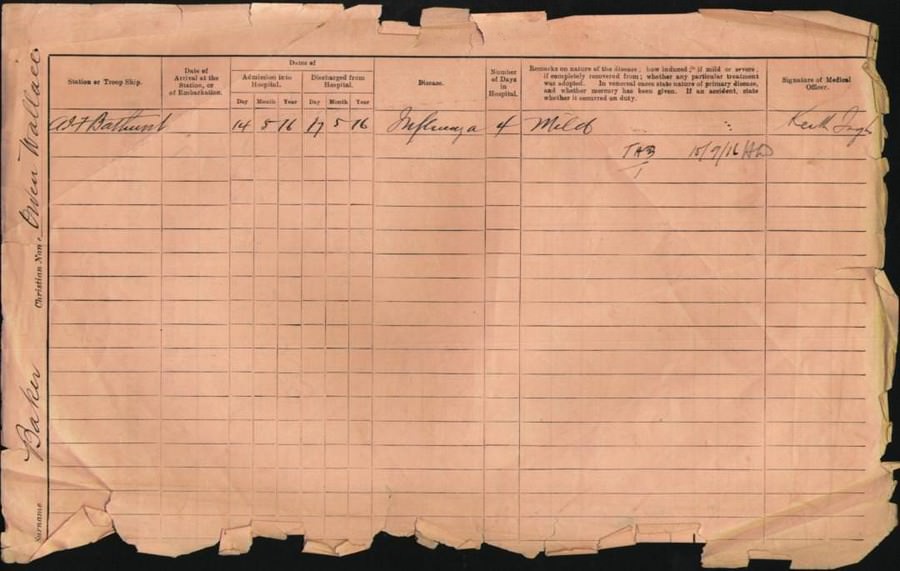 Station or Troop Ship.
Date of
Arrival at the
Station, or
of Embarkation.
Dates of
Admission into
Hospital.
Discharged from
Hospital.
Day Month Year Day Month Year
Disease.
Number
of Days
in
Hospital.
Remarks on nature of the disease; how induced; if mild or severe;
if completely recovered from; whether any particular treatment
was adopted. In venereal cases state nature of primary disease,
and whether mercury has been given. If an accident, state
whether it occurred on duty.
Signature of Medical
Officer.
Bathurst 14 5 16 17 5 16 Influenza 4 Mild Keith
TAB 15/9/16
Surname Baker Christian Name Owen Wallace